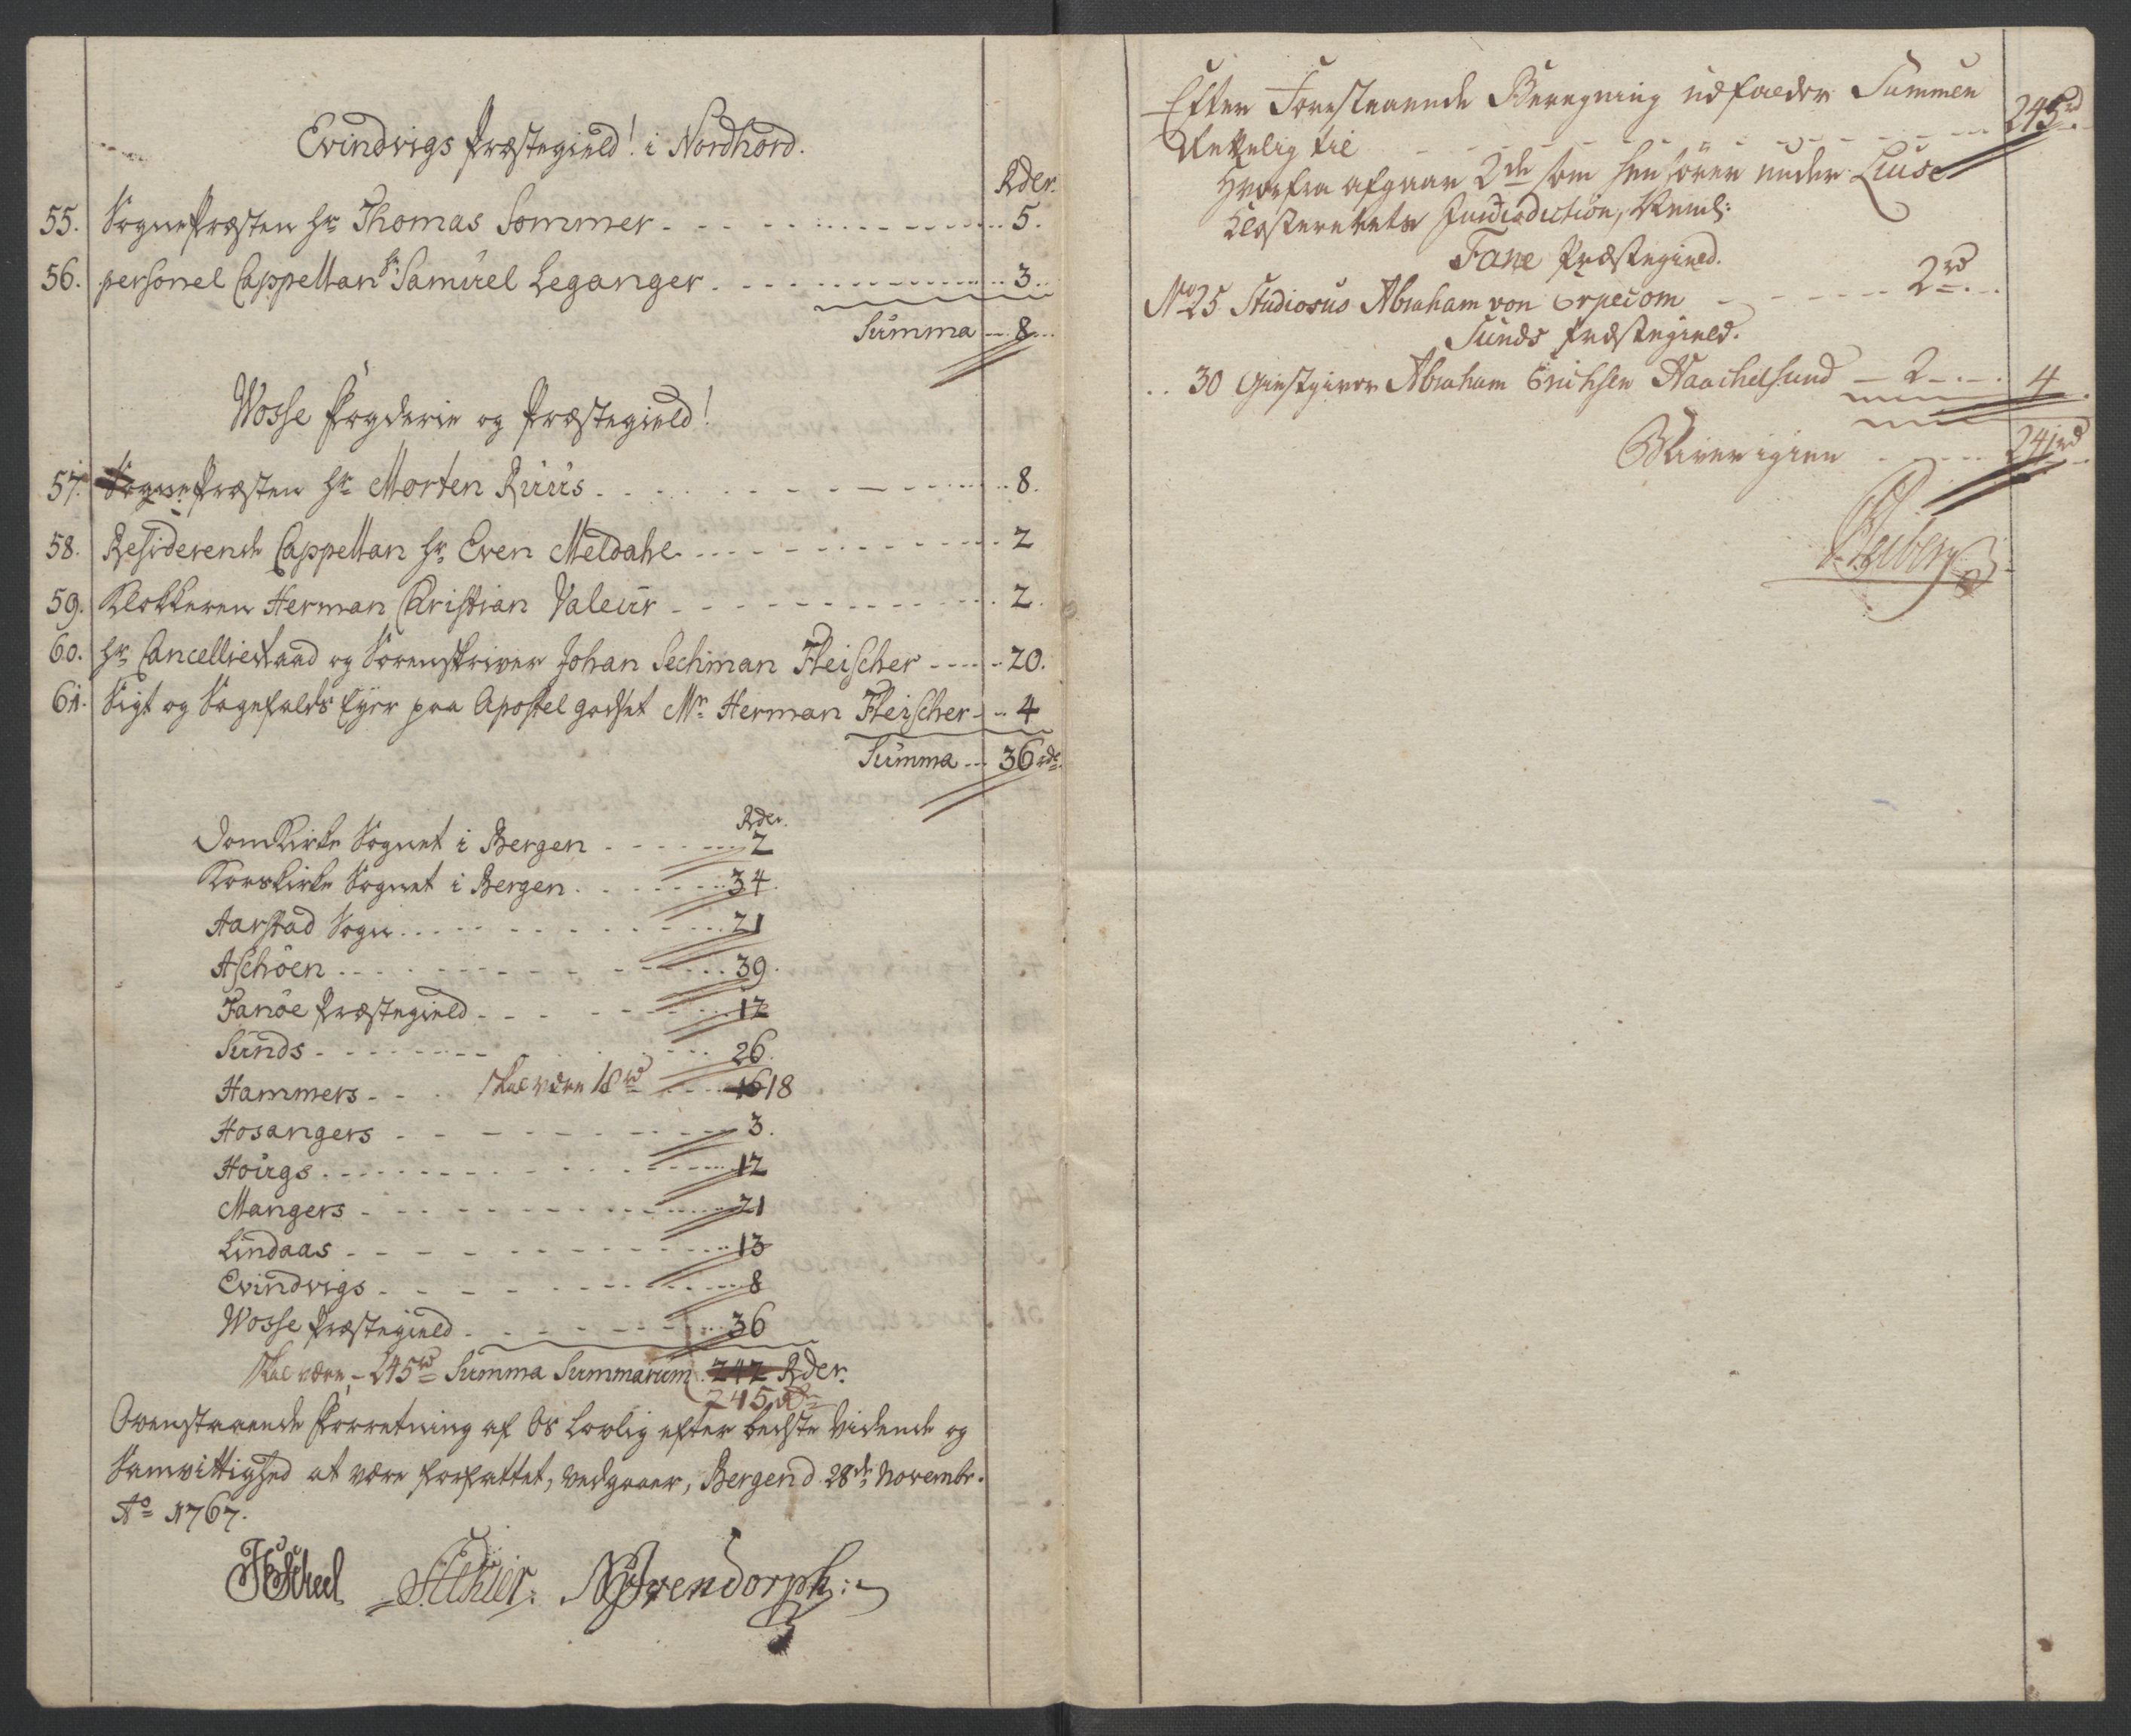 Evindvigs Præstegield! i Nordhord.
Rder.
55. SognePræsten Hr Thomas Sommer - - - 5.
56. personel Cappellan Hr Samuel Leganger - - - 3.
Summa - 8
Wosse Fogderie og Præstegield!
57. SognePræsten Hr Morten Ruus - - - 8.
58. Residerende Cappellan Hr Even Meldahl - - - 2
59. Klokkeren Herman Christian Valeur - - - 2.
60. Hr CancellieRaad og Sorenskriver Johan Sechman Fleischer - - - 20.
61. Sigt og Sagefalds Eyer paa Apostel godset Mr Herman Fleischer - - 4
Summa - 36 rdr
Rder.
DomKirke Sognet i Bergen - - - 2
Korskirke Sognet i Bergen - - - 34.
Aarstad Sogn - - - 21
Aschöen - - - 39.
Fanöe Præstegield - - - 12
Sunds - - - 26.
Hammers - - skal være 18 rd - - 16 18
Hosangers - - - 3.
Hougs - - - 12
Mangers - - - 21
Lindaas - - - 13
Evindvigs - - - 8
Wosse Præstegield - - - 36
skal være - 245 rd Summa Summarum 242 Rder.
245 rdr
Ovenstaaende Forretning af Os Lovlig efter bedste Vidende og
Samvittighed at være forfattet, vedgaaer, Bergen d. 28de Novembr.
Ao 1767.
Efter Forestaaende Beregning udfalder Summen
Rettelig til - - - 245 rd
Hvorfra afgaar 2de som henhörer under Liuse
Closterets Jurisdiction, Neml:
Fane Præstegield.
No 25 Studiosus Abraham von Erpecom - - - 2 rd
Sunds Præstegield.
.. 30 Giestgiver Abraham Erichsen Naachelsund - 2 - - 4
Bliver igien - - - 241 rd